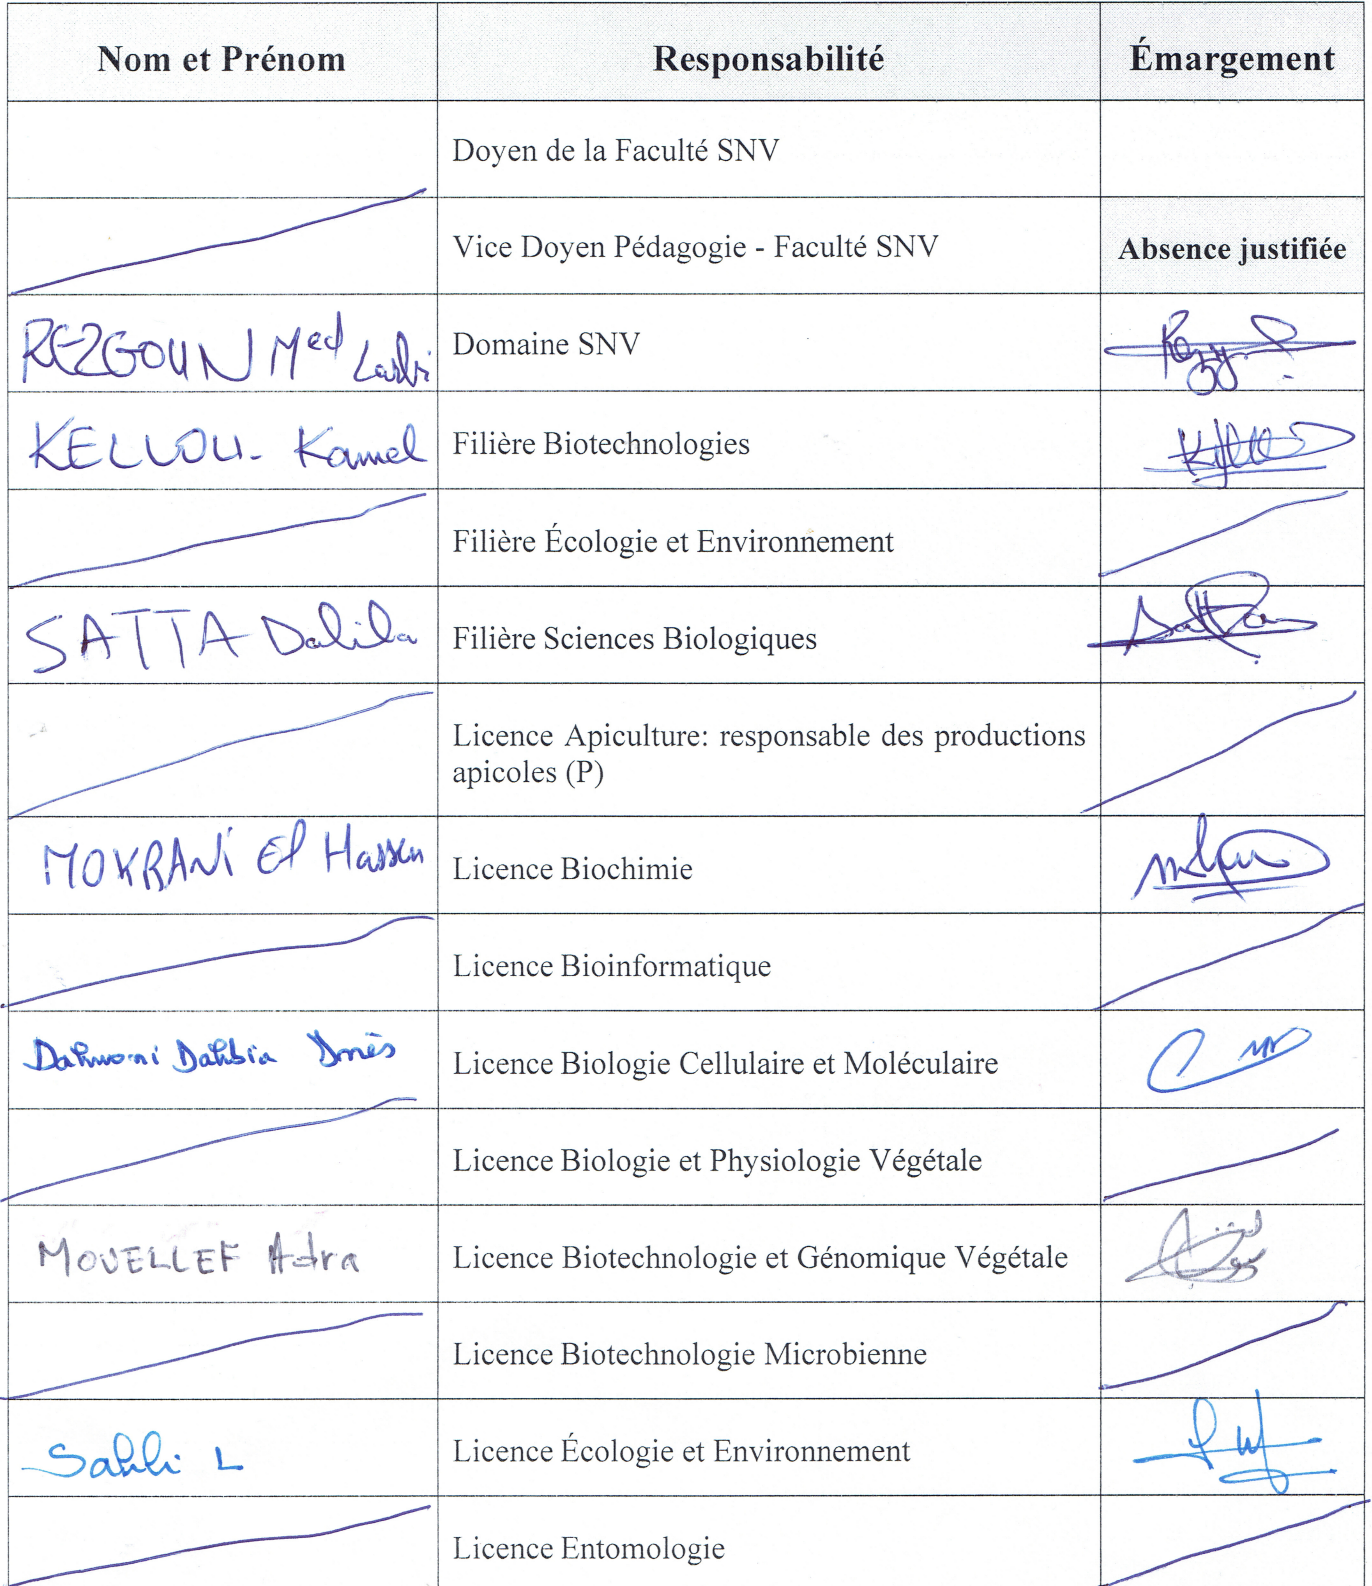 Nom et Prénom Responsabilité Émargement
Doyen de la Faculté SNV
Vice Doyen Pédagogie - Faculté SNV Absence justifiée
REZGOUN Med Larbi Domaine SNV
KELLOU - Kamel Filière Biotechnologies
Filière Écologie et Environnement
SATTA Dalila Filière Sciences Biologiques
Licence Apiculture: responsable des productions
apicoles (P)
MOKRANI El Hassen Licence Biochimie
Licence Bioinformatique
Dahmani Dahbia Inès Licence Biologie Cellulaire et Moléculaire
Licence Biologie et Physiologie Végétale
MOUELLEF Adra Licence Biotechnologie et Génomique Végétale
Licence Biotechnologie Microbienne
Sahli L Licence Écologie et Environnement
Licence Entomologie